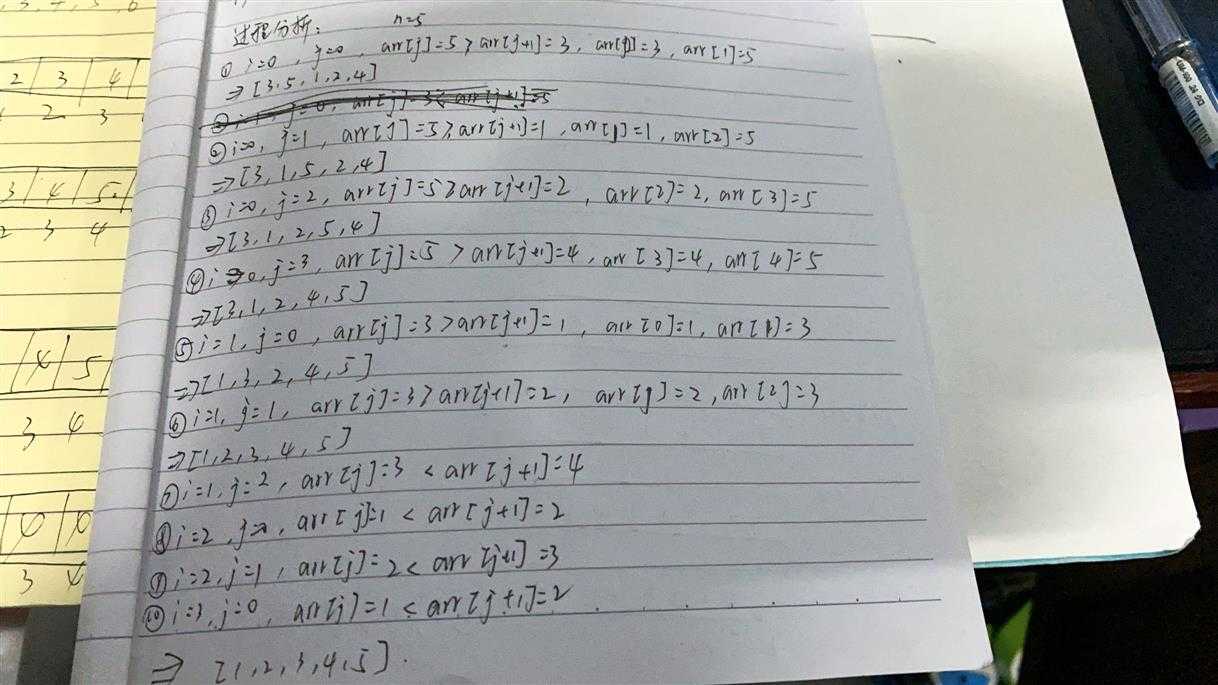 n=5
过程分析:
① i=0, j=0, arr[j]=5 > arr[j+1]=3, arr[0]=3, arr[1]=5
⇒ [3,5,1,2,4]
② i=0, j=1, arr[j]=5 > arr[j+1]=1, arr[1]=1, arr[2]=5
⇒ [3,1,5,2,4]
③ i=0, j=2, arr[j]=5 > arr[j+1]=2, arr[2]=2, arr[3]=5
⇒ [3,1,2,5,4]
④ i=0, j=3, arr[j]=5 > arr[j+1]=4, arr[3]=4, arr[4]=5
⇒ [3,1,2,4,5]
⑤ i=1, j=0, arr[j]=3 > arr[j+1]=1, arr[0]=1, arr[1]=3
⇒ [1,3,2,4,5]
⑥ i=1, j=1, arr[j]=3 > arr[j+1]=2, arr[1]=2, arr[2]=3
⇒ [1,2,3,4,5]
⑦ i=1, j=2, arr[j]=3 < arr[j+1]=4
⑧ i=2, j=0, arr[j]=1 < arr[j+1]=2
⑨ i=2, j=1, arr[j]=2 < arr[j+1]=3
⑩ i=3, j=0, arr[j]=1 < arr[j+1]=2
⇒ [1,2,3,4,5].
2 3 4
2 3
3 4 5
2 3 4
4 5
3 4
3 4